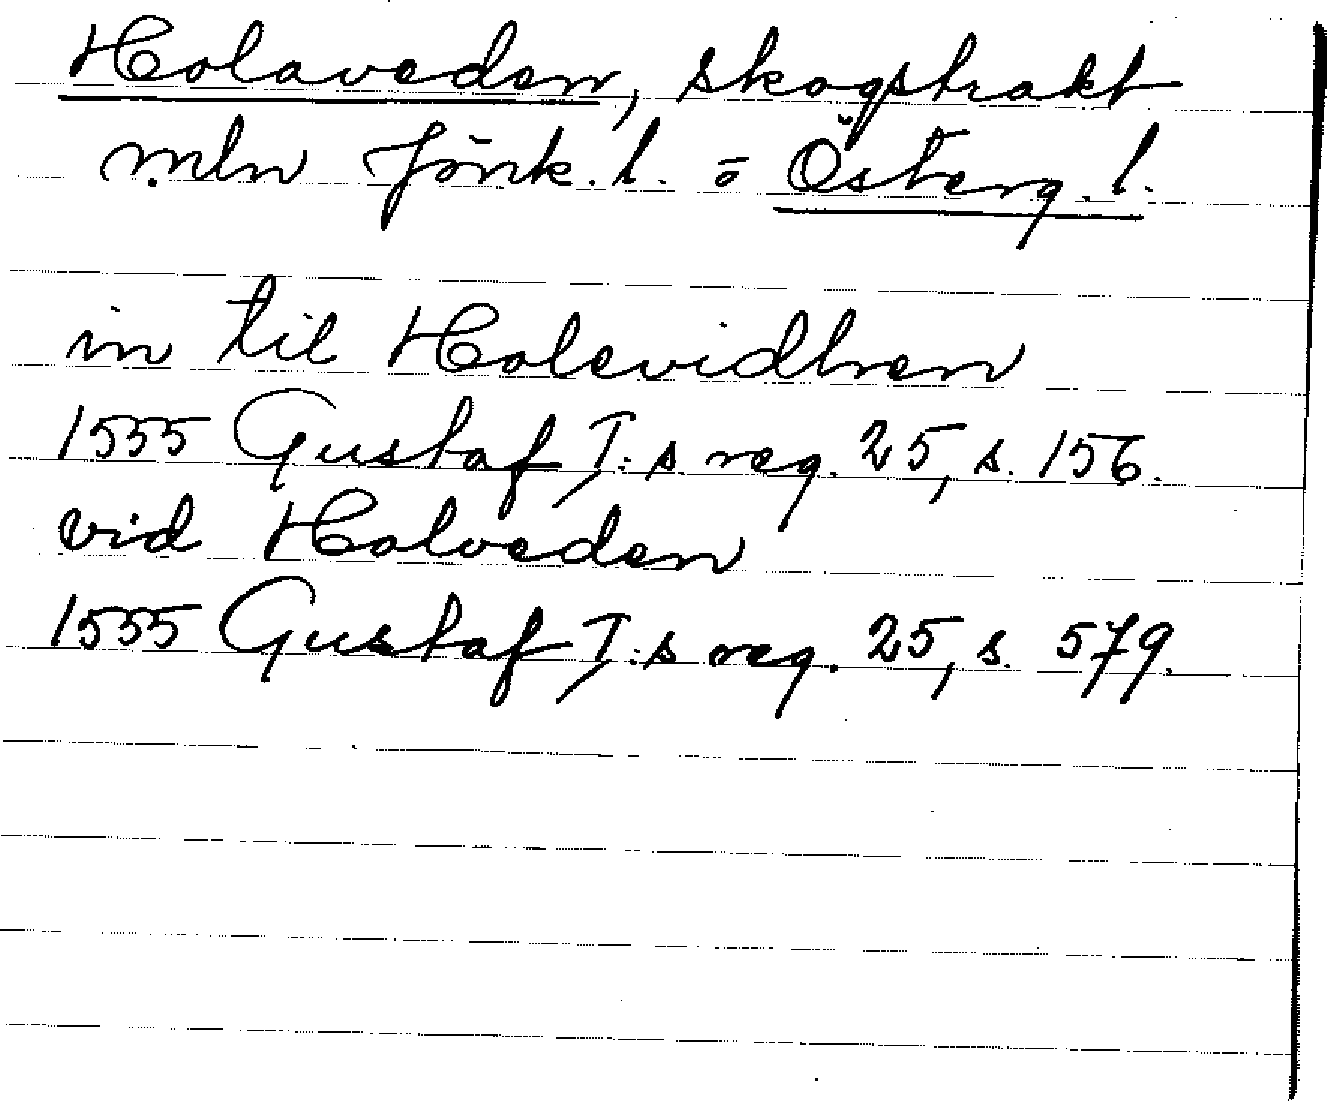 Holaveden, skogstrakt
mln Jönk. l. o Österg. l.
in til Holevidhen
1555 Gustaf I:s reg. 25, s. 156.
vid Holveden
1555 Gustaf I:s reg. 25, s. 579.